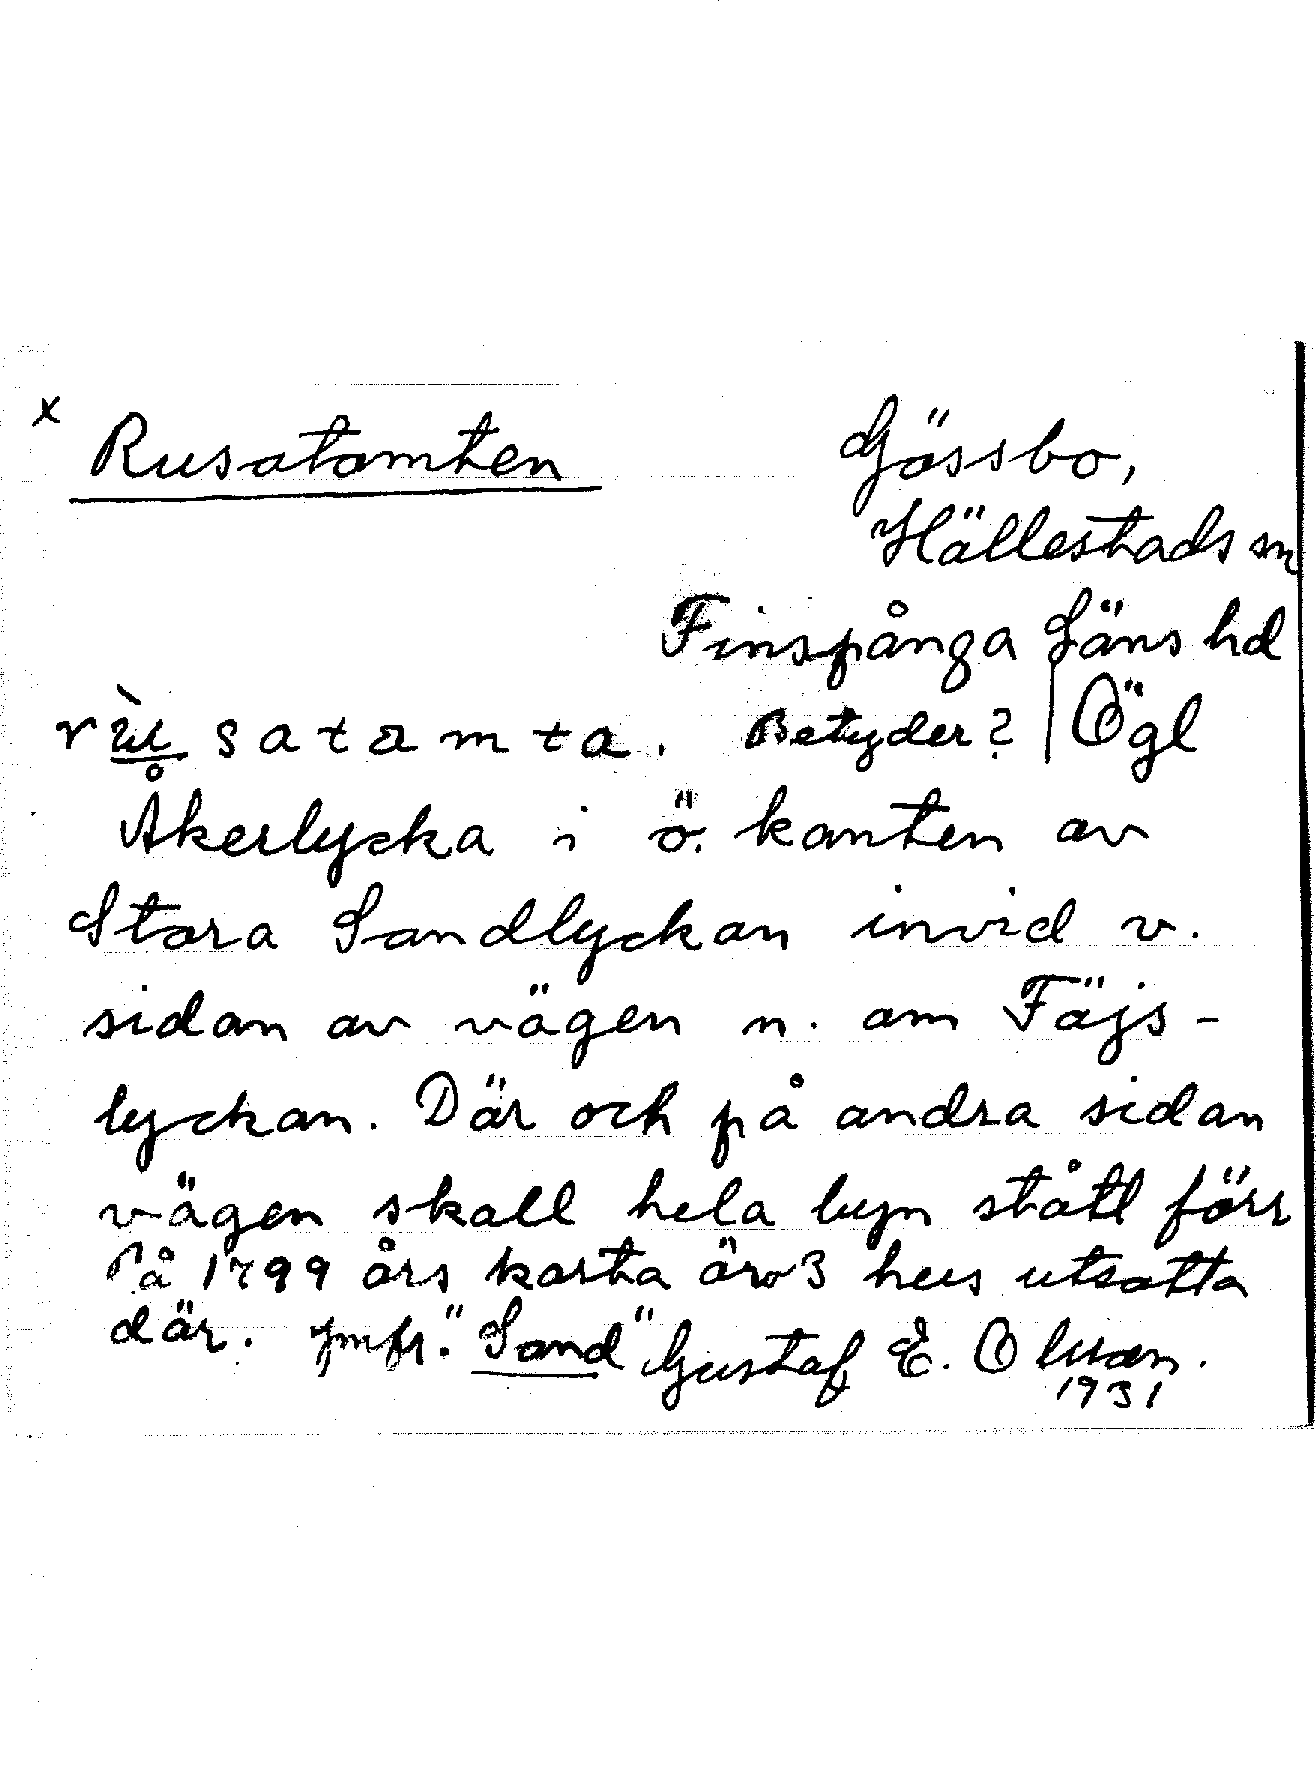 x Rusatomten Gössbo,
Hällestads sn
Finspånga Läns hd
rùsatamta. Betyder? | Ögl
Åkerlycka i ö. kanten av
Stora Sandlyckan invid v.
sidan av vägen n. om Fäjs-
lyckan. Där och på andra sidan
vägen skall hela byn stått förr
På 1799 års karta äro 3 hus utsatta
där. Jmfr. "Sand" Gustaf E. Olsson.
1931